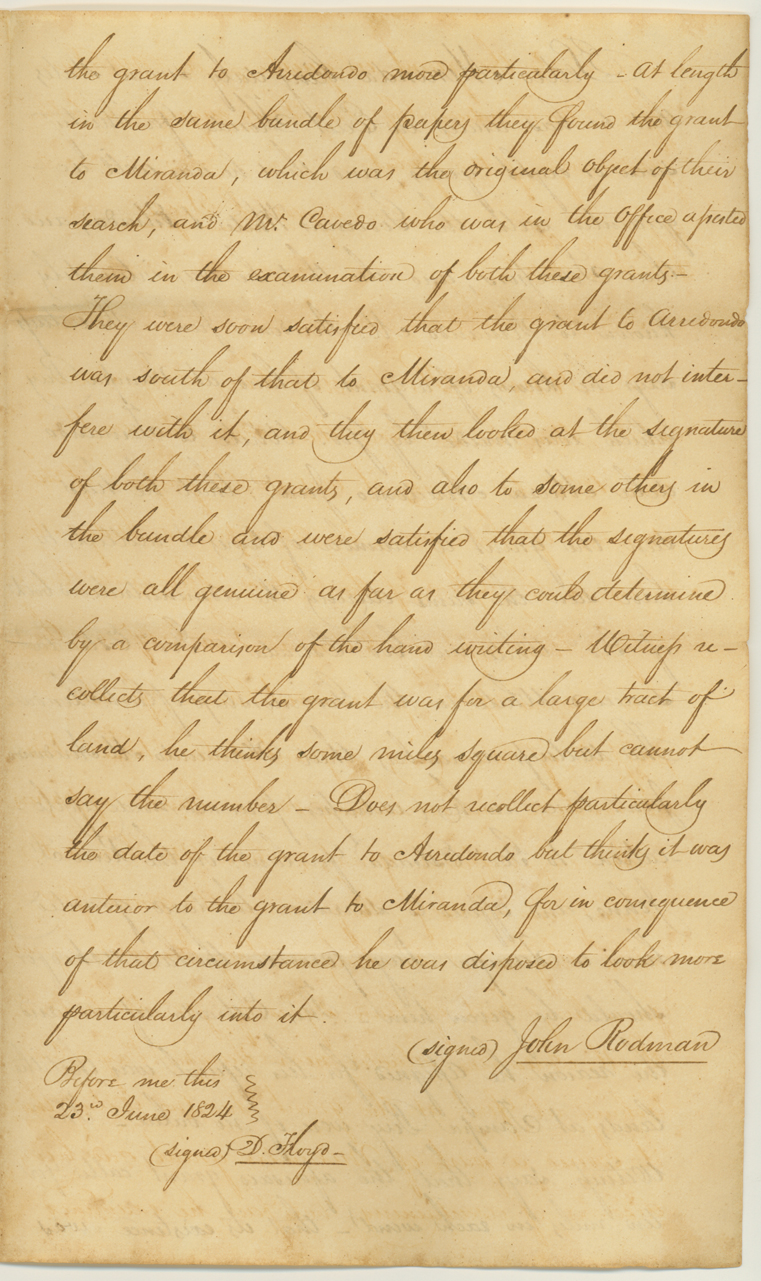 the grant to Arredondo more particularly - at length
in the same bundle of papers they found the grant
to Miranda, which was the original object of their
search, and Mr. Cavedo who was in the Office assisted
them in the examination of both these grants.-
They were soon satisfied that the grant to Arredondo
was south of that to Miranda, and did not inter-
fere with it, and they then looked at the signature
of both these grants, and also to some others in
the bundle and were satisfied that the signatures
were all genuine as far as they could determine
by a comparison of the hand writing - Witness re-
collects that the grant was for a large tract of
land, he thinks some miles square but cannot
say the number - Does not recollect particularly
the date of the grant to Arredondo but thinks it was
anterior to the grant to Miranda, for in consequence
of that circumstance he was disposed to look more
particularly into it.
(signed) John Rodman
Before me this
23.d June 1824
(signed) D. Floyd-